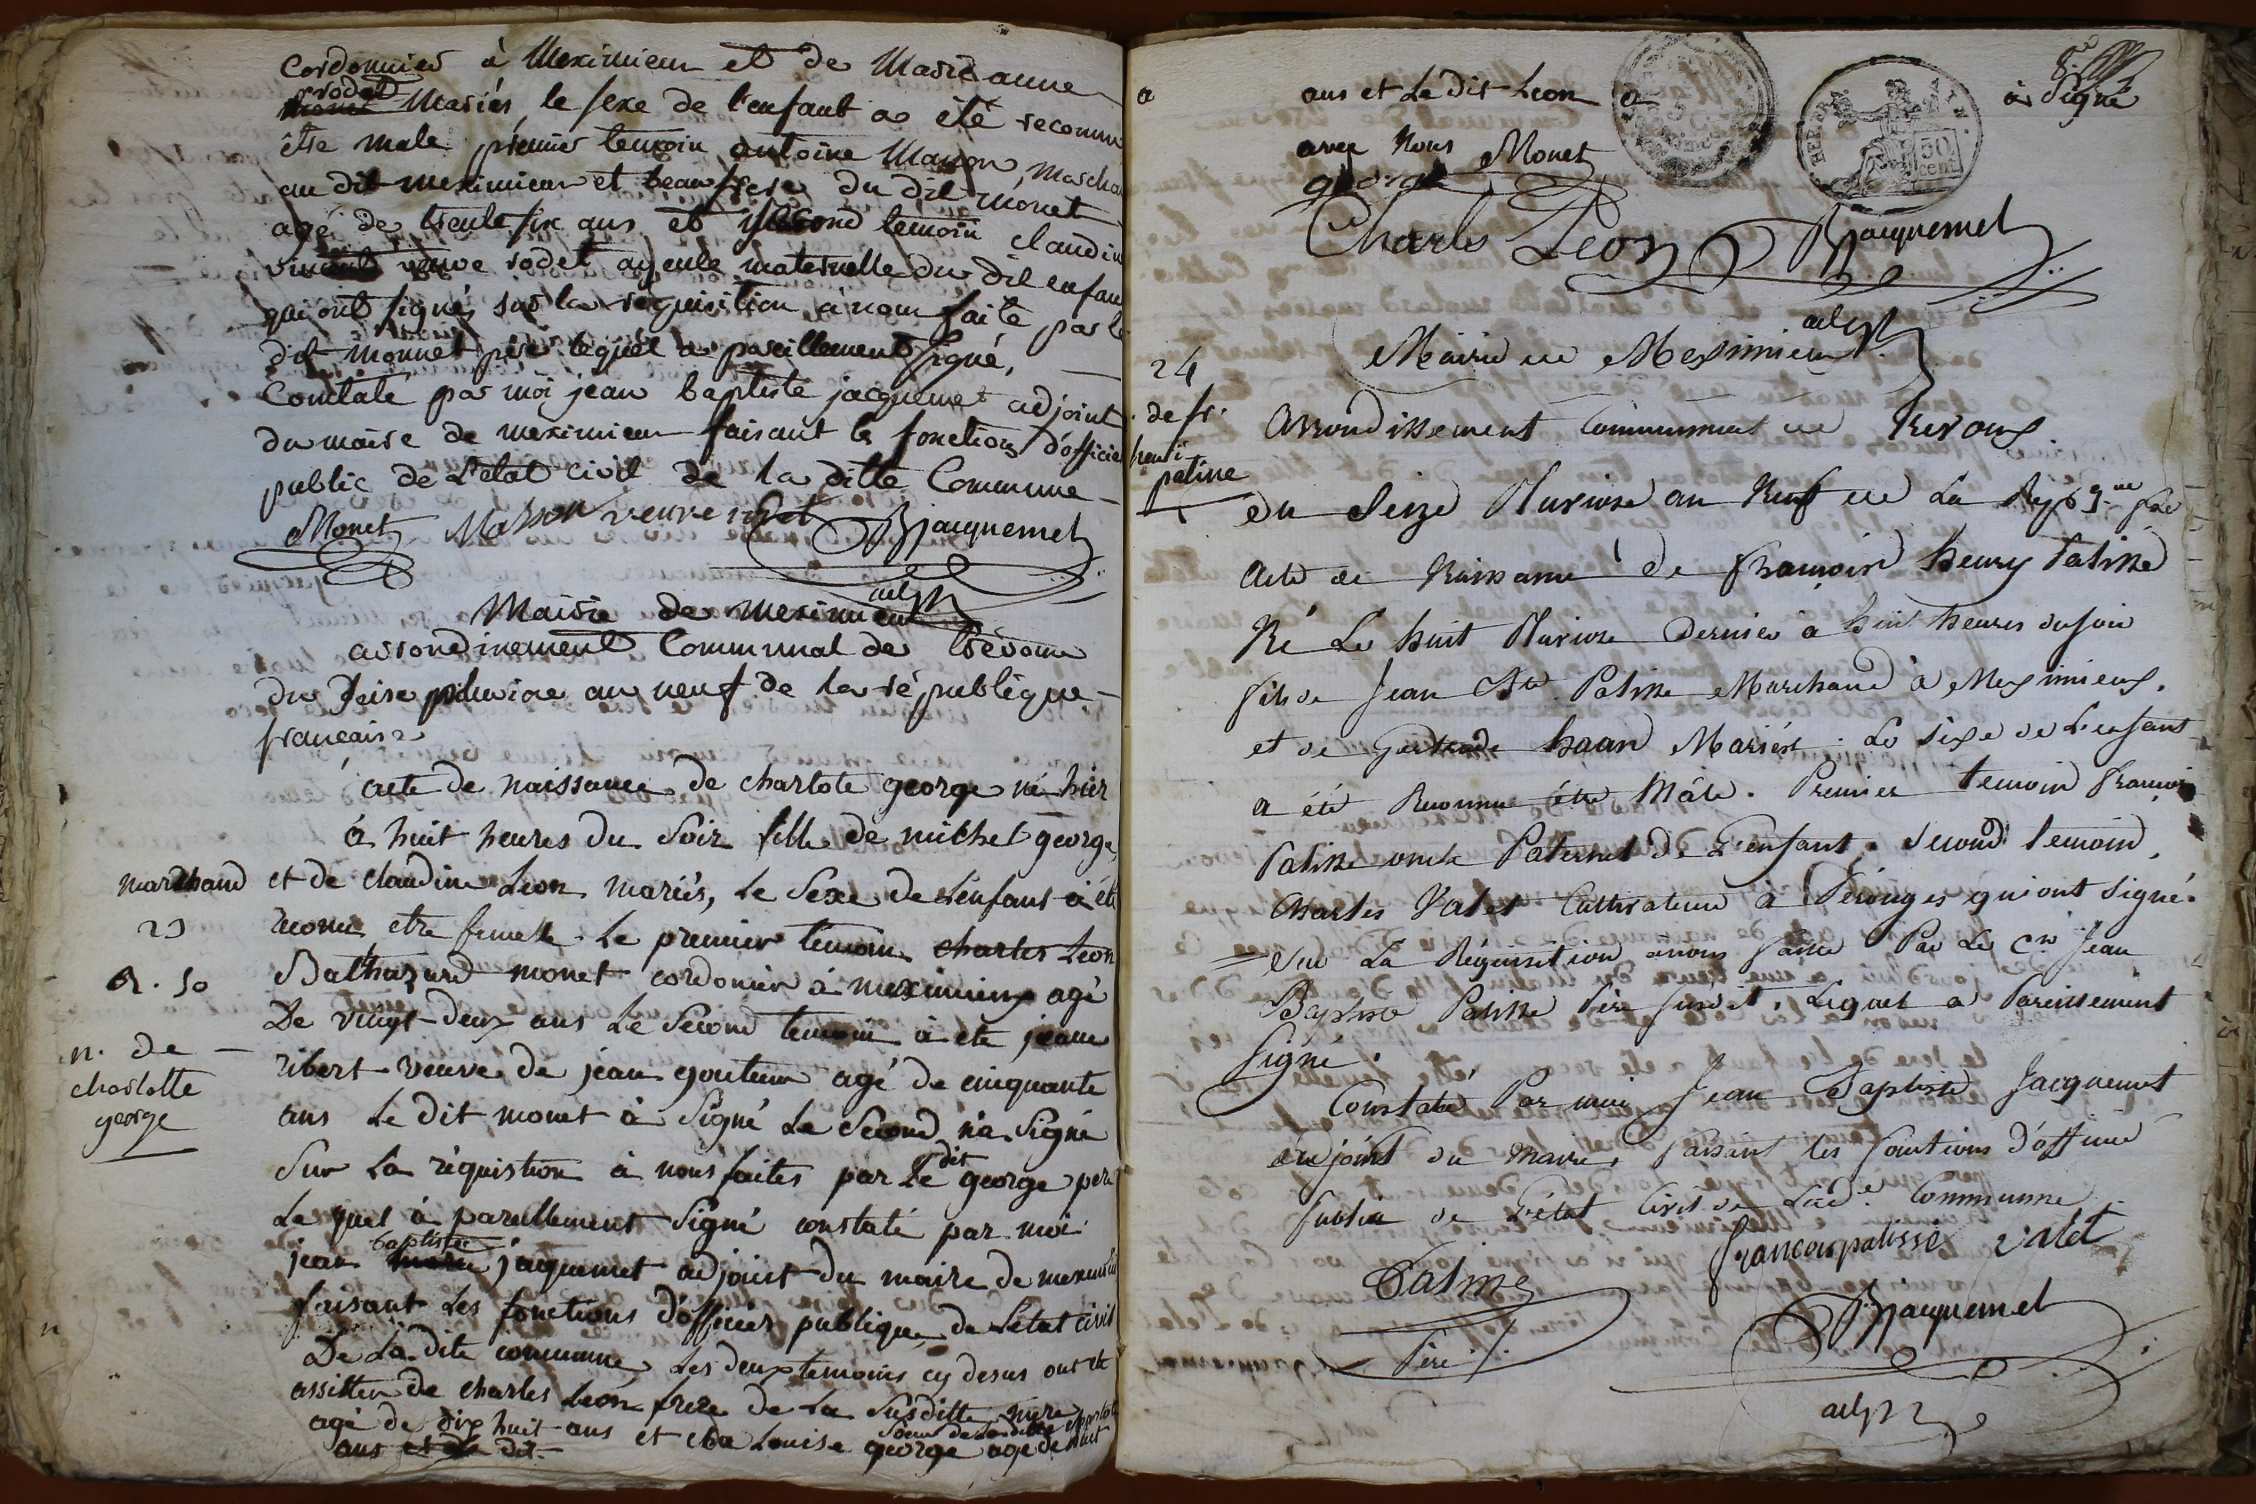 Cordonnier à Meximieux et de Marie anne
rodet
mariés, le sexe de l'enfant a été reconnu
être male. premier temoin antoine Masson, marcha
au dit meximieux et beaufrere du dit monet
agé de trente six ans et second temoin claudine
veuve rodet ayeule maternelle du dit enfan
qui ont signés sur la requisition à nous faite par le
dit monnet pere lequel a pareillement signé,
Constaté par moi jean baptiste jacquemet adjoint
du maire de meximieux faisant les fonctions d'officier
public de l'état civil de la ditte Commune
Monet Masson veuve rodet BJacquemet
adjt
Mairie de meximieux
arrondissement Communal de trévoux
du seise pluviose an neuf de la république
française
acte de naissance de charlote george né hier
à huit heures du soir fille de michel george,
marchand et de claudine Leon mariés, le sexe de l'enfant à été
23 reconu etre femelle. le premier temoin charles Leon
R. 50 Balthazard monet cordonier à meximieux agé
De vingt-deux ans le second temoin à eté jeane
n. de
charlotte
george
ribert veuve de jean gouteun agé de cinquante
ans le dit monet à signé le second n'a signé
Sur la réquistion à nous faites par le dit george pere
Le quel à pareillement signé constaté par moi
jean baptiste jaquemet adjoint du maire de meximieux
faisant les fonctions d'officier publique de l'état civil
De la dite commune les deux temoins cy desus ont été
assister de charles Leon frere de la susditte mere
agé de dix huit ans et de Louise george agé de huit
soeur de la ditte charlote
ans et le dit
8.e
a ans et le dit Leon a à signé
REP. FRA.
50
cent
avec nous Monet
george
Charles Leon BJacquemet
adjt
Mairie de Meximieux
24
de fr.
henri
patisse
Arrondissement Communal de Trevoux
Du Seize Pluviose an Neuf de La Repbque fse
Acte de Naissance de François henry Patisse
Né Le huit Pluviose dernier à huit heures du soir
fils de Jean Bte Patisse Marchand à Meximieux.
et de Gertrude haan Mariés. Le sexe de L'enfant
a été Reconnu être Mâle. Premier temoin François
Patisse oncle Paternel de L'enfant, second temoin,
Charles Valet Cultivateur à Pérouges qui ont signé.
Sur La Réquisition à nous faitte Par Le Cn Jean
Baptiste Patisse Père susdit, Lequel a Pareillement
signé.
Constaté Par moi Jean Baptiste Jacquemet
adjoint du maire, faisant les fonctions d'officier
Public de L'état Civil de Lade Commune
françois patisse valet
Patisse
Père
BJacquemet
adjt